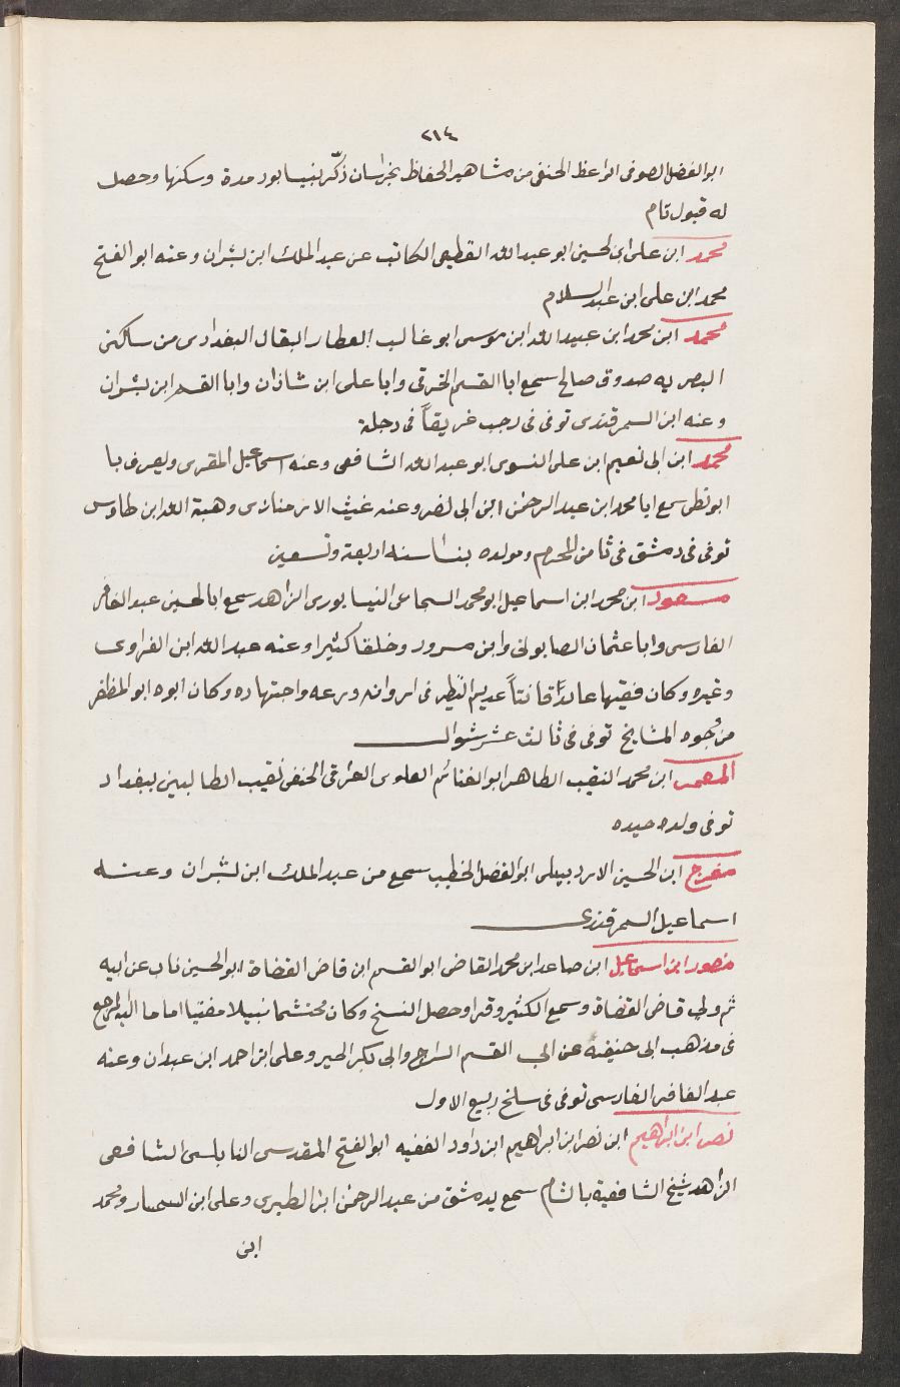 ٢١٤
ابو الفضل الصوفى الواعظ الحنفى من مشاهير الحفاظ بخراسان ذكّر بنيسابور مدة وسكنها وحصل
له قبول تام
محمد ابن على ابن الحسين ابو عبد الله القطيعى الكاتب عن عبد الملك ابن بشران وعنه ابو الفتح
محمد ابن على ابن عبد السلام
محمد ابن محمد ابن عبيد الله ابن موسى ابو غالب العطار البقال البغدادى من ساكنى
البصريه صدوق صالح سمع ابا القسم الخرقى وابا على ابن شاذان وابا القسم ابن بشران
وعنه ابن السمرقندى توفى فى رجب غريقاً فى دجلة
محمد ابن ابى نعيم ابن على النسوى ابو عبد الله الشافعى وعنه اسماعيل المقرى ويعرف با
سمع ابا محمد ابن عبد الرحمن ابن ابى نصر وعنه غيث الارمنازى وهبة الله ابن طاوس
توفى فى دمشق فى ثامن المحرم ومولده سنه اربعة وتسعين
مسعود ابن محمد ابن اسماعيل ابو محمد النيسابورى الزاهد سمع ابا الحسين عبد الغافر
الفارسى وابا عثمان الصابونى وابن مسرور وخلقا كثيرا وعنه عبد الله ابن الفراوى
وغيره وكان فقيها عابداً قانتاً عديم النظير فى اوانه ورعه واجتهاده وكان ابوه ابو المظفر
من وجوه المشايخ توفى فى ثالث عشر شوال
المعمر ابن محمد النقيب الطاهر ابو الغنائم العلوى الحنفى نقيب الطالبين ببغداد
توفى ولده حيدره
مفرج ابن الحسين الاردبيلى ابو الفضل الخطيب سمع من عبد الملك ابن بشران وعنه
اسماعيل السمرقندى
منصور ابن اسماعيل ابن صاعد ابن محمد القاضى ابو القسم ابن قاضى القضاة ابو الحسين ناب عن ابيه
ثم ولى قاضى القضاة وسمع الكثير وقرا وحصل النسخ وكان محتشما نبيلا مفتيا اماما اليه المرجع
فى مذهب ابى حنيفة عن ابى القسم السراج وابى بكر الحيرى وعلى ابن احمد ابن عبدان وعنه
عبد الغافر الفارسى توفى فى سلخ ربيع الاول
نصر ابن ابراهيم ابن نصر ابن ابراهيم ابن داود الفقيه ابو الفتح المقدسى النابلسى الشافعى
الزاهد شيخ الشافعية بالشام سمع بدمشق من عبد الرحمن ابن الطبيرى وعلى ابن السمسار ومحمد
ابن